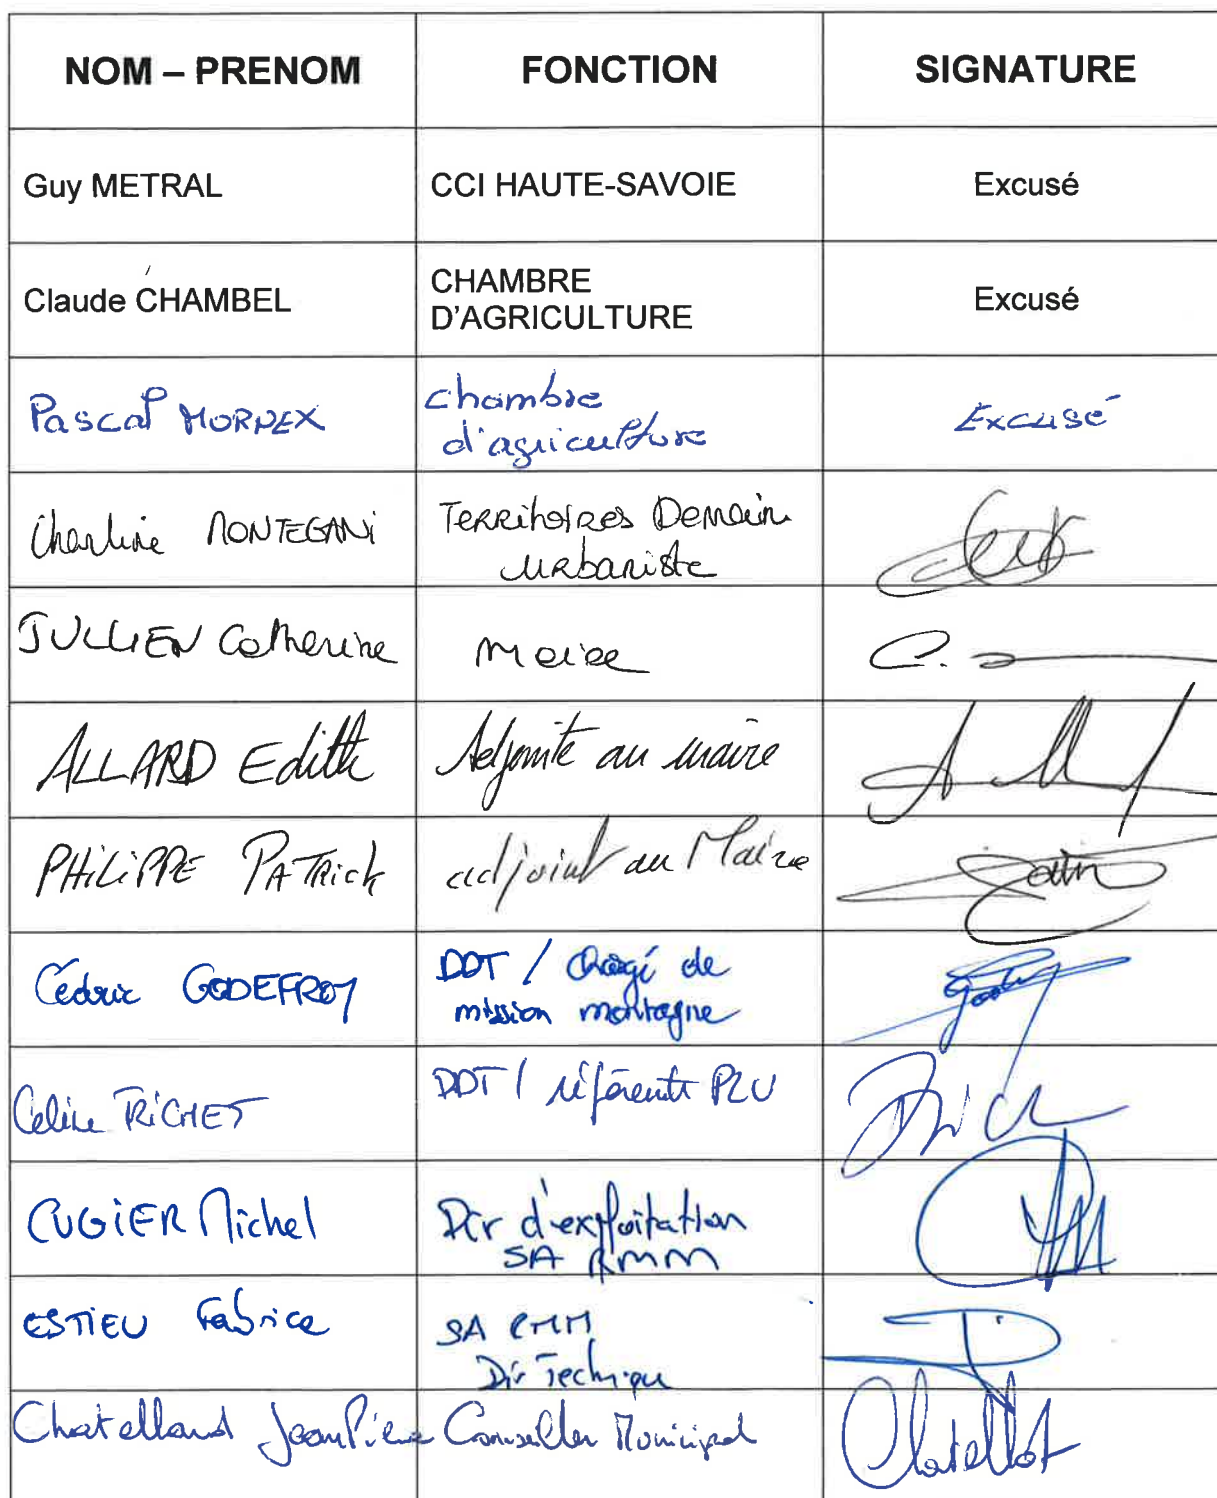 NOM – PRENOM FONCTION SIGNATURE
Guy METRAL CCI HAUTE-SAVOIE Excusé
Claude CHAMBEL CHAMBRE
D'AGRICULTURE Excusé
Pascal MORNEX chambre
d'agriculture Excusé
Charline MONTEGANI Territoires Demain
urbaniste
JULLIEN Catherine Maire
ALLARD Edith Adjointe au maire
PHILIPPE PATRick adjoint au Maire
Cédric GODEFROY DDT / Chargé de
mission montagne
Celine TRICHET DDT / référente PLU
CUGIER Michel Dir d'exploitation
SA RMM
ESTIEU Fabrice SA RMM
Dir Technique
Chatelland Jean Pierre Conseiller Municipal